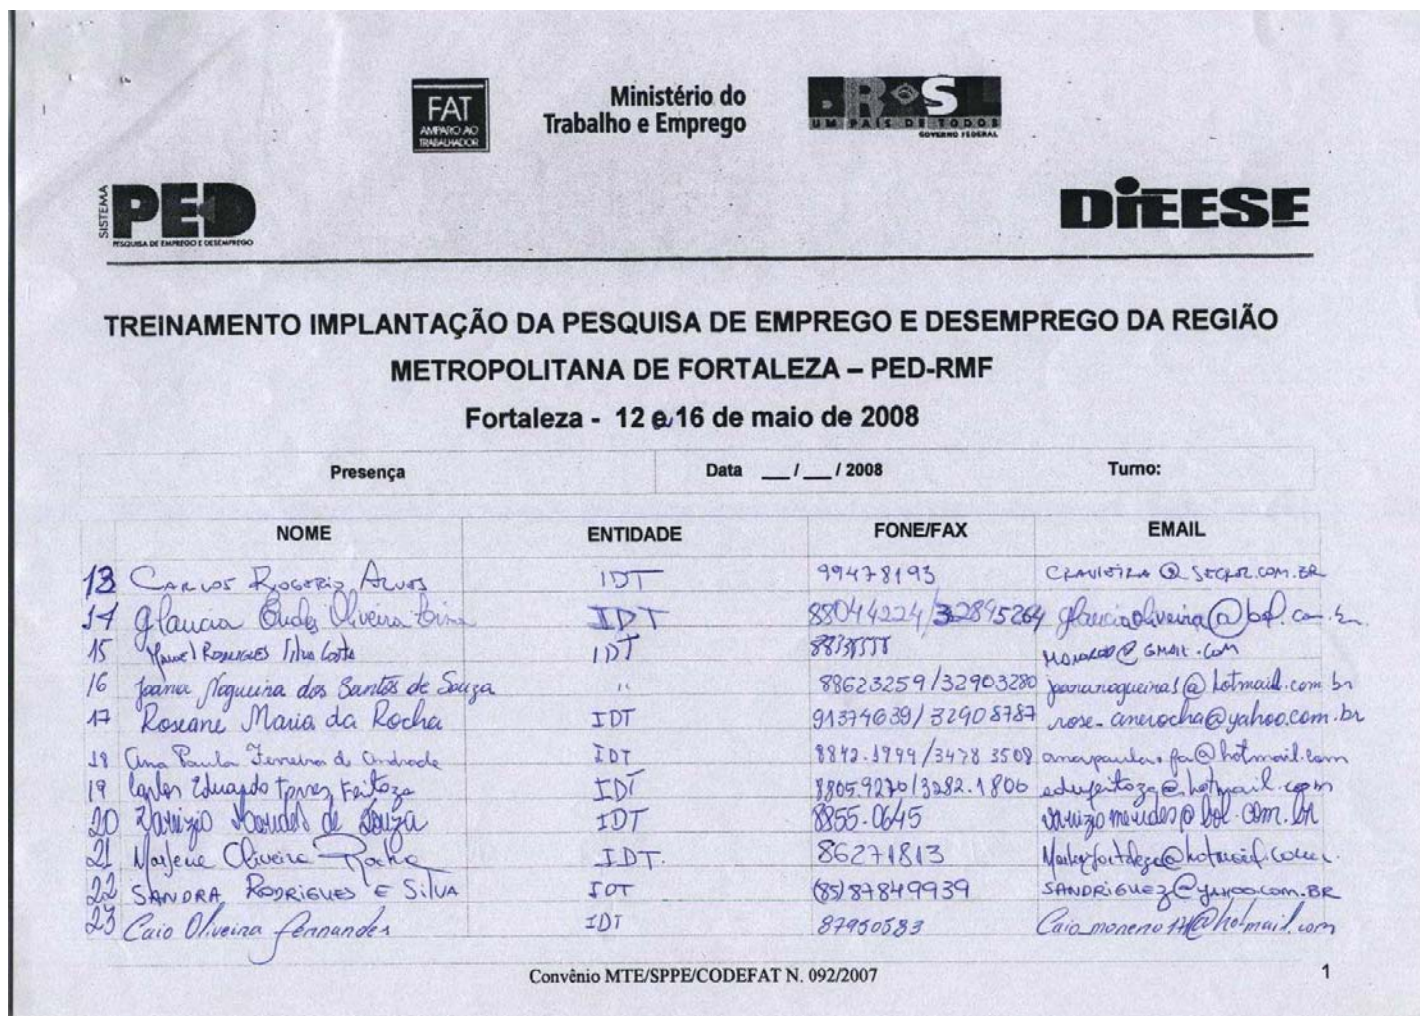 FAT
AMPARO AO
TRABALHADOR
Ministério do
Trabalho e Emprego
BRASIL
UM PAÍS DE TODOS
GOVERNO FEDERAL
SISTEMA
PED
PESQUISA DE EMPREGO E DESEMPREGO
DIEESE
TREINAMENTO IMPLANTAÇÃO DA PESQUISA DE EMPREGO E DESEMPREGO DA REGIÃO
METROPOLITANA DE FORTALEZA – PED-RMF
Fortaleza - 12 a 16 de maio de 2008
Presença Data __/__/ 2008 Turno:
NOME ENTIDADE FONE/FAX EMAIL
13 CARLOS ROGERIO ALVES IDT 99478193
14 Glaucia Oliveira Lima IDT 88044224/32895264 glauciaoliveira@bol.com.br
15 Manoel RODRIGUES Silva Costa IDT @GMAIL.COM
16 Joana Nogueira dos Santos de Souza " 88623259/32903280 joananogueiras@hotmail.com.br
17 Roseane Maria da Rocha IDT 91374639/32908787 rose-anerocha@yahoo.com.br
18 Ana Paula Ferreira de Andrade IDT 8842.1944/3478 3508 anapaula.fa@hotmail.com
19 Carlos Eduardo Torres Feitoza IDT 8805.9270/3282.1806 edufeitoza@hotmail.com
20 de Souza IDT 8855.0645
21 Marlene Oliveira Rocha IDT. 86271813
22 SANDRA RODRIGUES E SILVA IDT (85)87849939 SANDRIGUEZ@YAHOO.COM.BR
23 Caio Oliveira Fernandes IDT 87950583 Caio_moreno171@hotmail.com
Convênio MTE/SPPE/CODEFAT N. 092/2007 1